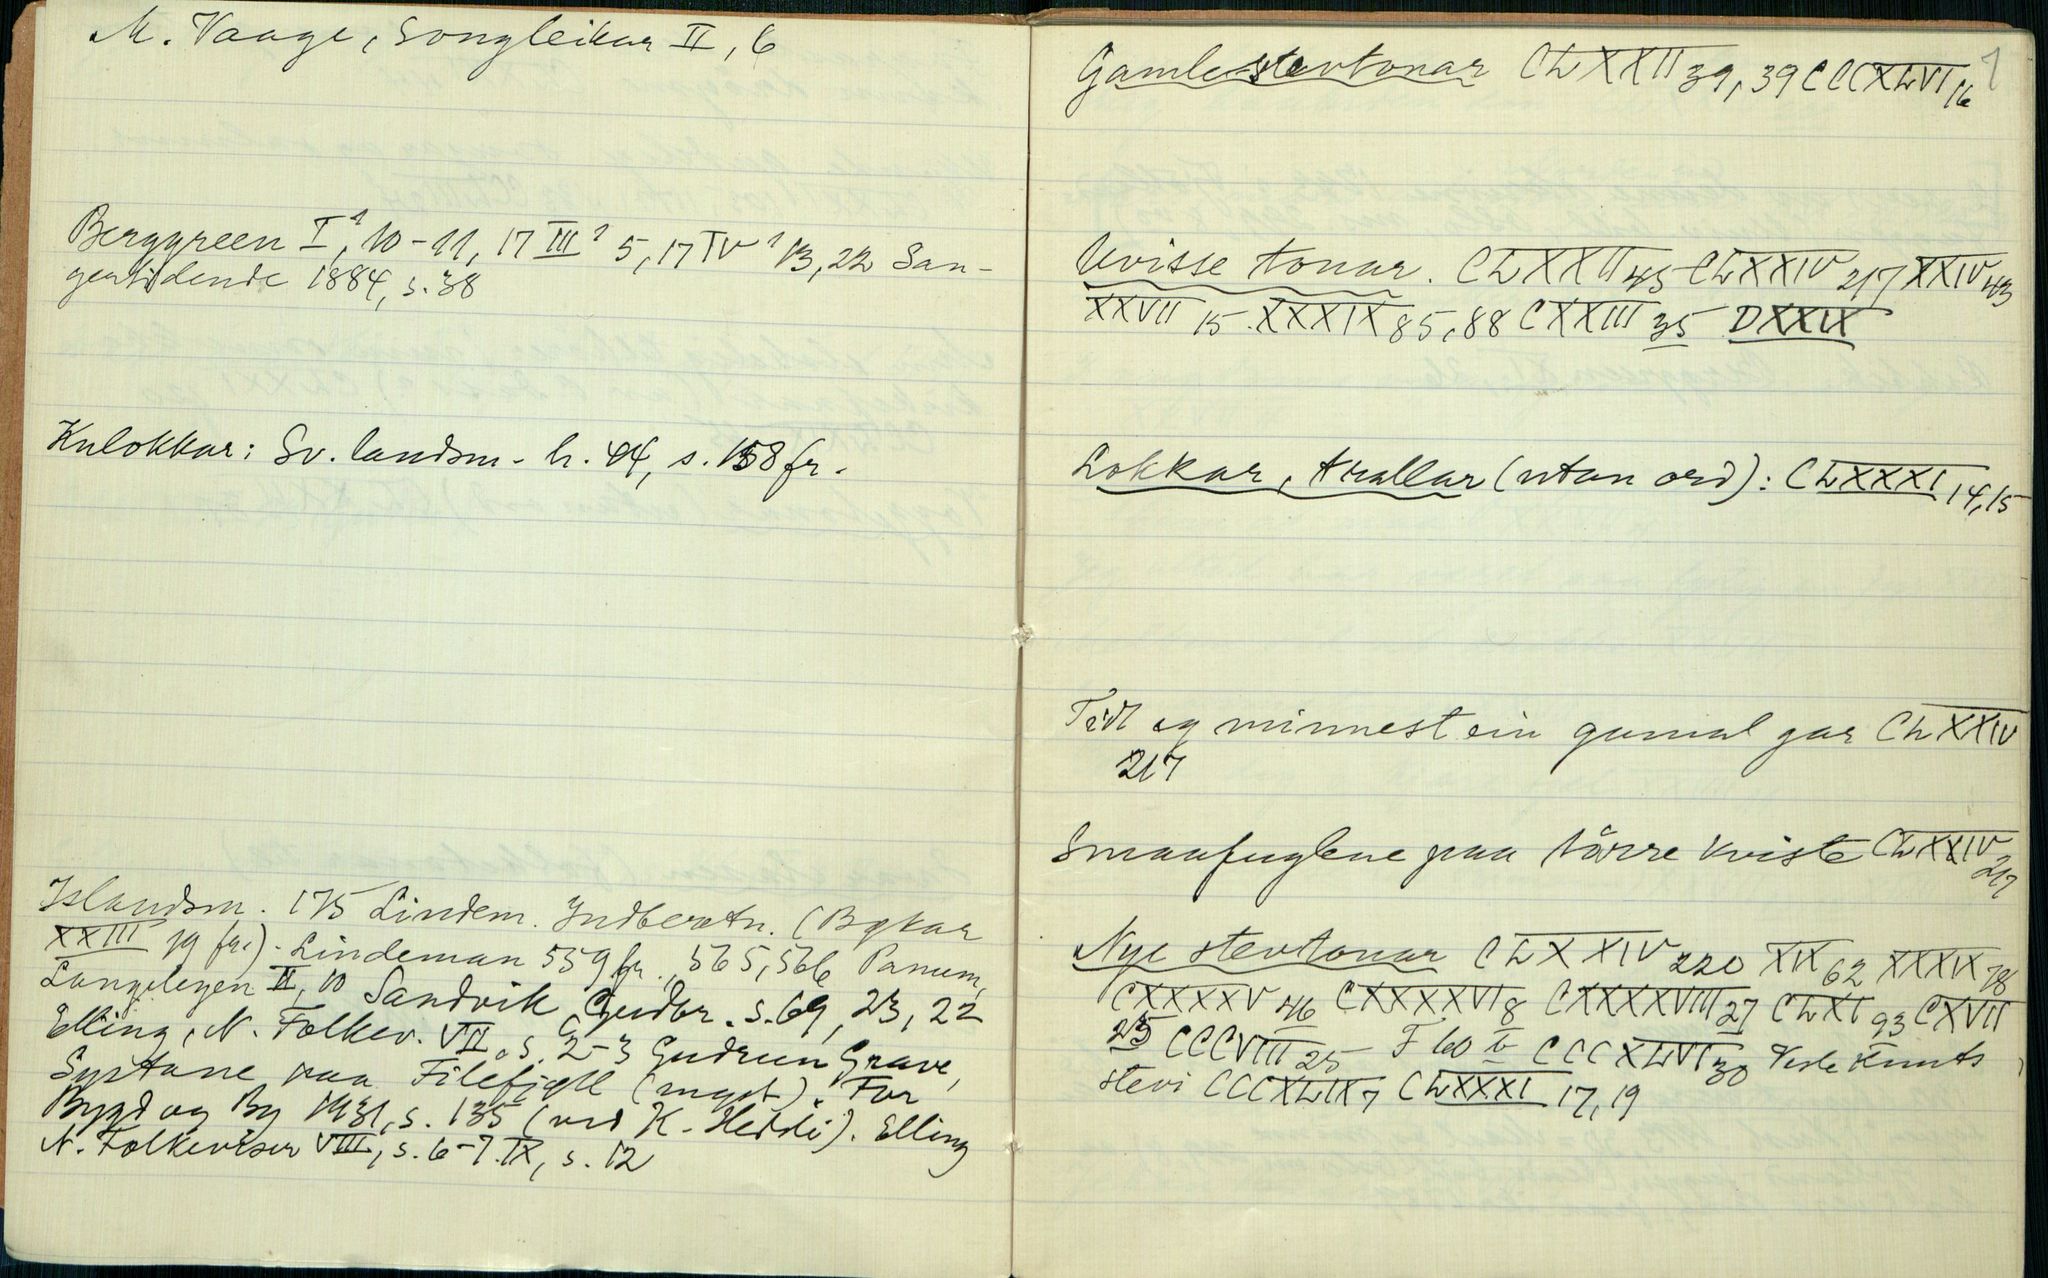 M. Vaage, Songleikar II, 6
Berggreen I¹, 10-11, 17 III¹ 5, 17 IV¹ 13, 22 San-
gertidende 1884, s. 38
Kulokkar: Sv. landsm. h. 44, s. 158 fr.
Islandsm. 175 Lindem. Indberetn. (Bykar
XXIII 19 fr.). Lindeman 559 fr., 565, 566 Panum,
Langelegen II, 10 Sandvik Gudbr. s. 69, 23, 22
Elling, N. Folkev. VII, s. 2-3 Gudrun Grave,
Systane paa Filefjell (mgst). For
Bygd og By 1931, s. 135 (ved K. Heddi). Elling
N. Folkeviser VIII, s. 6-7. IX, s. 12
1
Gamlestevtonar CLXXII 39, 39 CCCXLVI 16
Uvisse tonar. CLXXII 45 CLXXIV 217 XXIV 43
XXVII 15. XXXIX 85, 88 CXXIII 35 DXXIX
Lokkar, trallar (utan ord): CLXXXI 14, 15
Tidt eg minnest ein gamal gar CLXXIV
217
Smaafuglene paa törre kviste CLXXIV
217
Nye stevtonar CLXXIV 220 XIX 62 XXXIX 78
CXXXXV 46 CXXXXVI 8 CXXXXVIII 27 CLXI 93 CXVII
25 CCCVIII 25 F 60 CCCXLVI 30 Vesle Knuts
stevi CCCXLIX 7 CLXXXI 17, 19